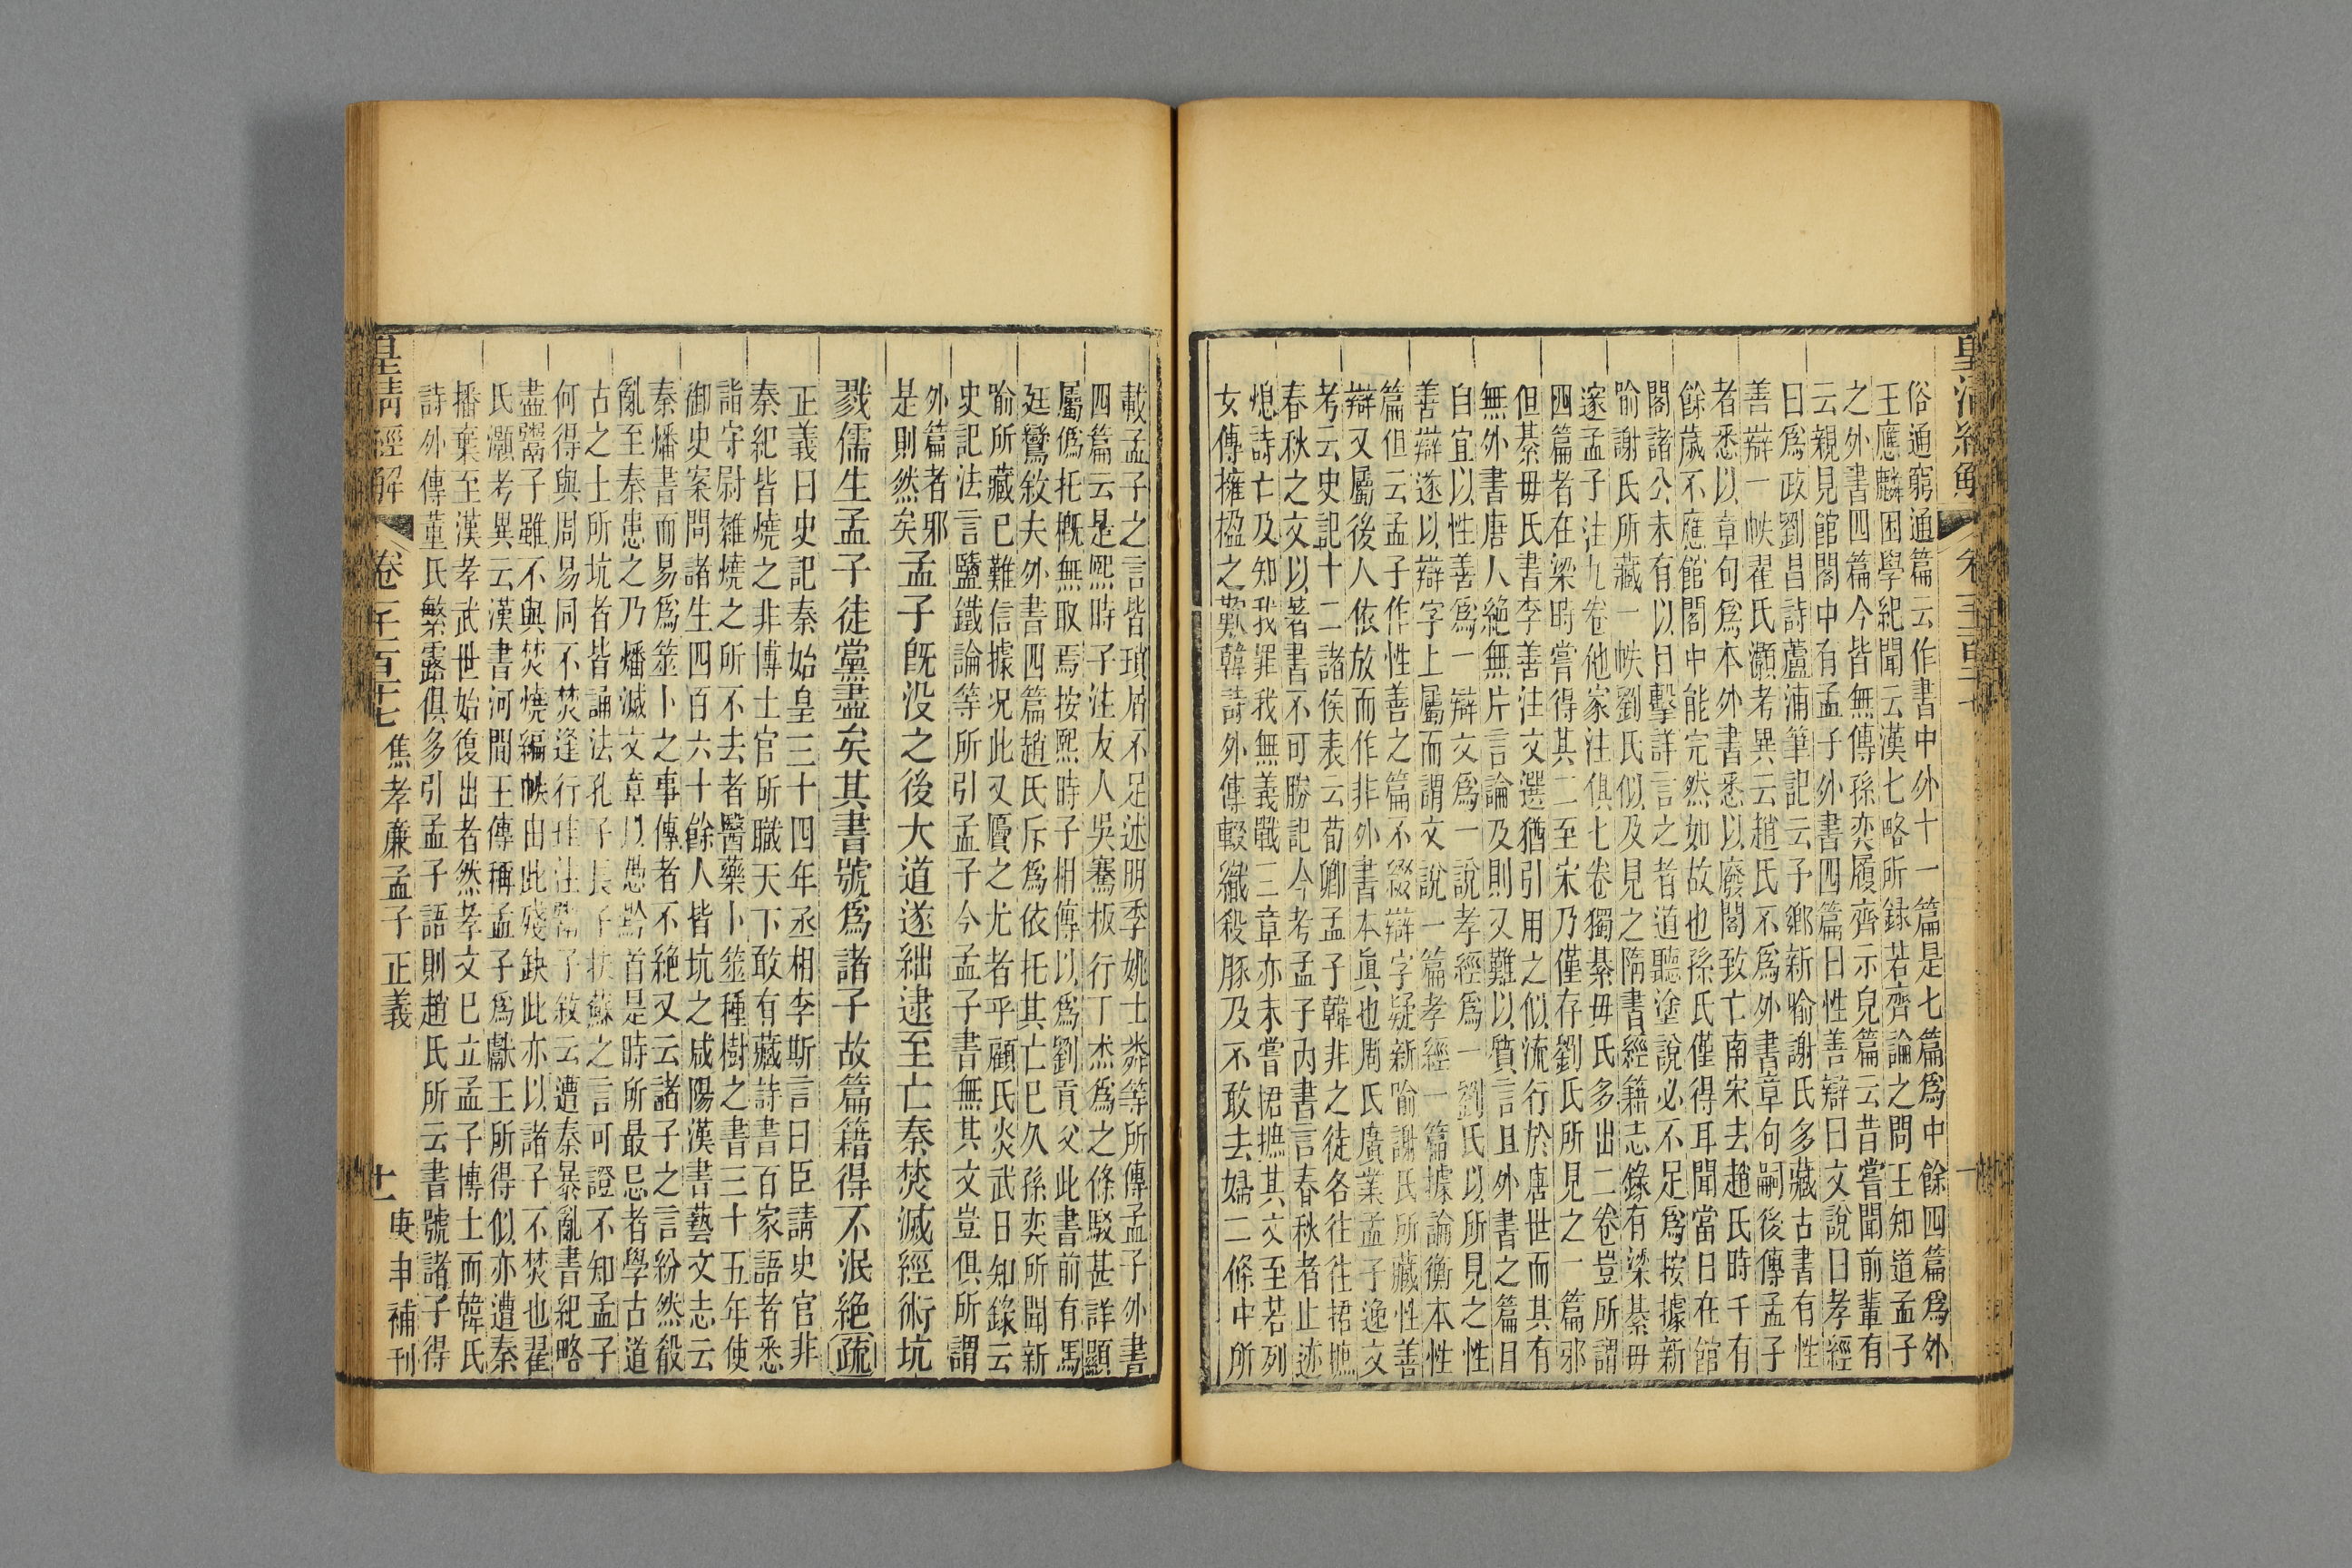 皇清經解
卷一千一百十七
俗通窮通篇云作書中外十一篇是七篇爲中餘四篇爲外
王應麟困學紀聞云漢七略所録若齊論之問王知道孟子
之外書四篇今皆無傳孫奕履齊示兒篇云昔嘗聞前輩有
云親見館閣中有孟子外書四篇曰性善辯曰文說曰孝經
曰爲政劉昌詩蘆浦筆記云予鄉新喻謝氏多藏古書有性
善辯一帙翟氏灝考異云趙氏不爲外書章句嗣後傳孟子
者悉以章句爲本外書悉以廢閣致亡南宋去趙氏時千有
餘歲不應館閣中能完然如故也孫氏僅得耳聞當日在館
閣諸公未有以目擊詳言之者道聽塗說必不足爲按據新
喻謝氏所藏一帙劉氏似及見之隋書經籍志錄有梁綦毋
邃孟子注九卷他家注俱七卷獨綦毋氏多出二卷豈所謂
四篇者在梁時嘗得其二至宋乃僅存劉氏所見之一篇邪
但綦毋氏書李善注文選猶引用之似流行於唐世而其有
無外書唐人絕無片言論及則又難以質言且外書之篇目
自宜以性善爲一辯文爲一說孝經爲一劉氏以所見之性
善辯遂以辯字上屬而謂文說一篇孝經一篇據論衡本性
篇但云孟子作性善之篇不綴辯字疑新喻謝氏所藏性善
辯又屬後人依放而作非外書本眞也周氏廣業孟子逸文
考云史記十二諸侯表云荀卿孟子韓非之徒各往往捃摭
春秋之文以著書不可勝記今考孟子內書言春秋者止迹
熄詩亡及知我罪我無義戰三章亦未嘗捃摭其文至若列
女傳擁楹之歎韓詩外傳輟織殺豚及不敢去婦二條中所
載孟子之言皆瑣屑不足述明季姚士粦等所傳孟子外書
四篇云是熙時子注友人吳騫板行丁杰爲之條駁甚詳顯
屬僞托概無取焉按熙時子相傳以爲劉貢父此書前有馬
廷鸞敘夫外書四篇趙氏斥爲依托其亡已久孫奕所聞新
喻所藏已難信據況此又贗之尤者乎顧氏炎武日知錄云
史記法言鹽鐵論等所引孟子今孟子書無其文豈俱所謂
外篇者邪
是則然矣孟子既没之後大道遂絀逮至亡秦焚滅經術坑
戮儒生孟子徒黨盡矣其書號爲諸子故篇籍得不泯絕疏
正義曰史記秦始皇三十四年丞相李斯言曰臣請史官非
秦紀皆燒之非博士官所職天下敢有藏詩書百家語者悉
詣守尉雜燒之所不去者醫藥卜筮種樹之書三十五年使
御史案問諸生四百六十餘人皆坑之咸陽漢書藝文志云
秦燔書而易爲筮卜之事傳者不絕又云諸子之言紛然殽
亂至秦患之乃燔滅文章以愚黔首是時所最忌者學古道
古之士所坑者皆誦法孔子長子扶蘇之言可證不知孟子
何得與周易同不焚逢行珪注鬻子敘云遭秦暴亂書紀略
盡鬻子雖不與焚燒編帙由此殘缺此亦以諸子不焚也翟
氏灝考異云漢書河間王傳稱孟子爲獻王所得似亦遭秦
播棄至漢孝武世始復出者然孝文已立孟子博士而韓氏
詩外傳董氏繁露俱多引孟子語則趙氏所云書號諸子得
皇清經解
卷一千一百十七
焦孝廉孟子正義
十一
庚申補刊